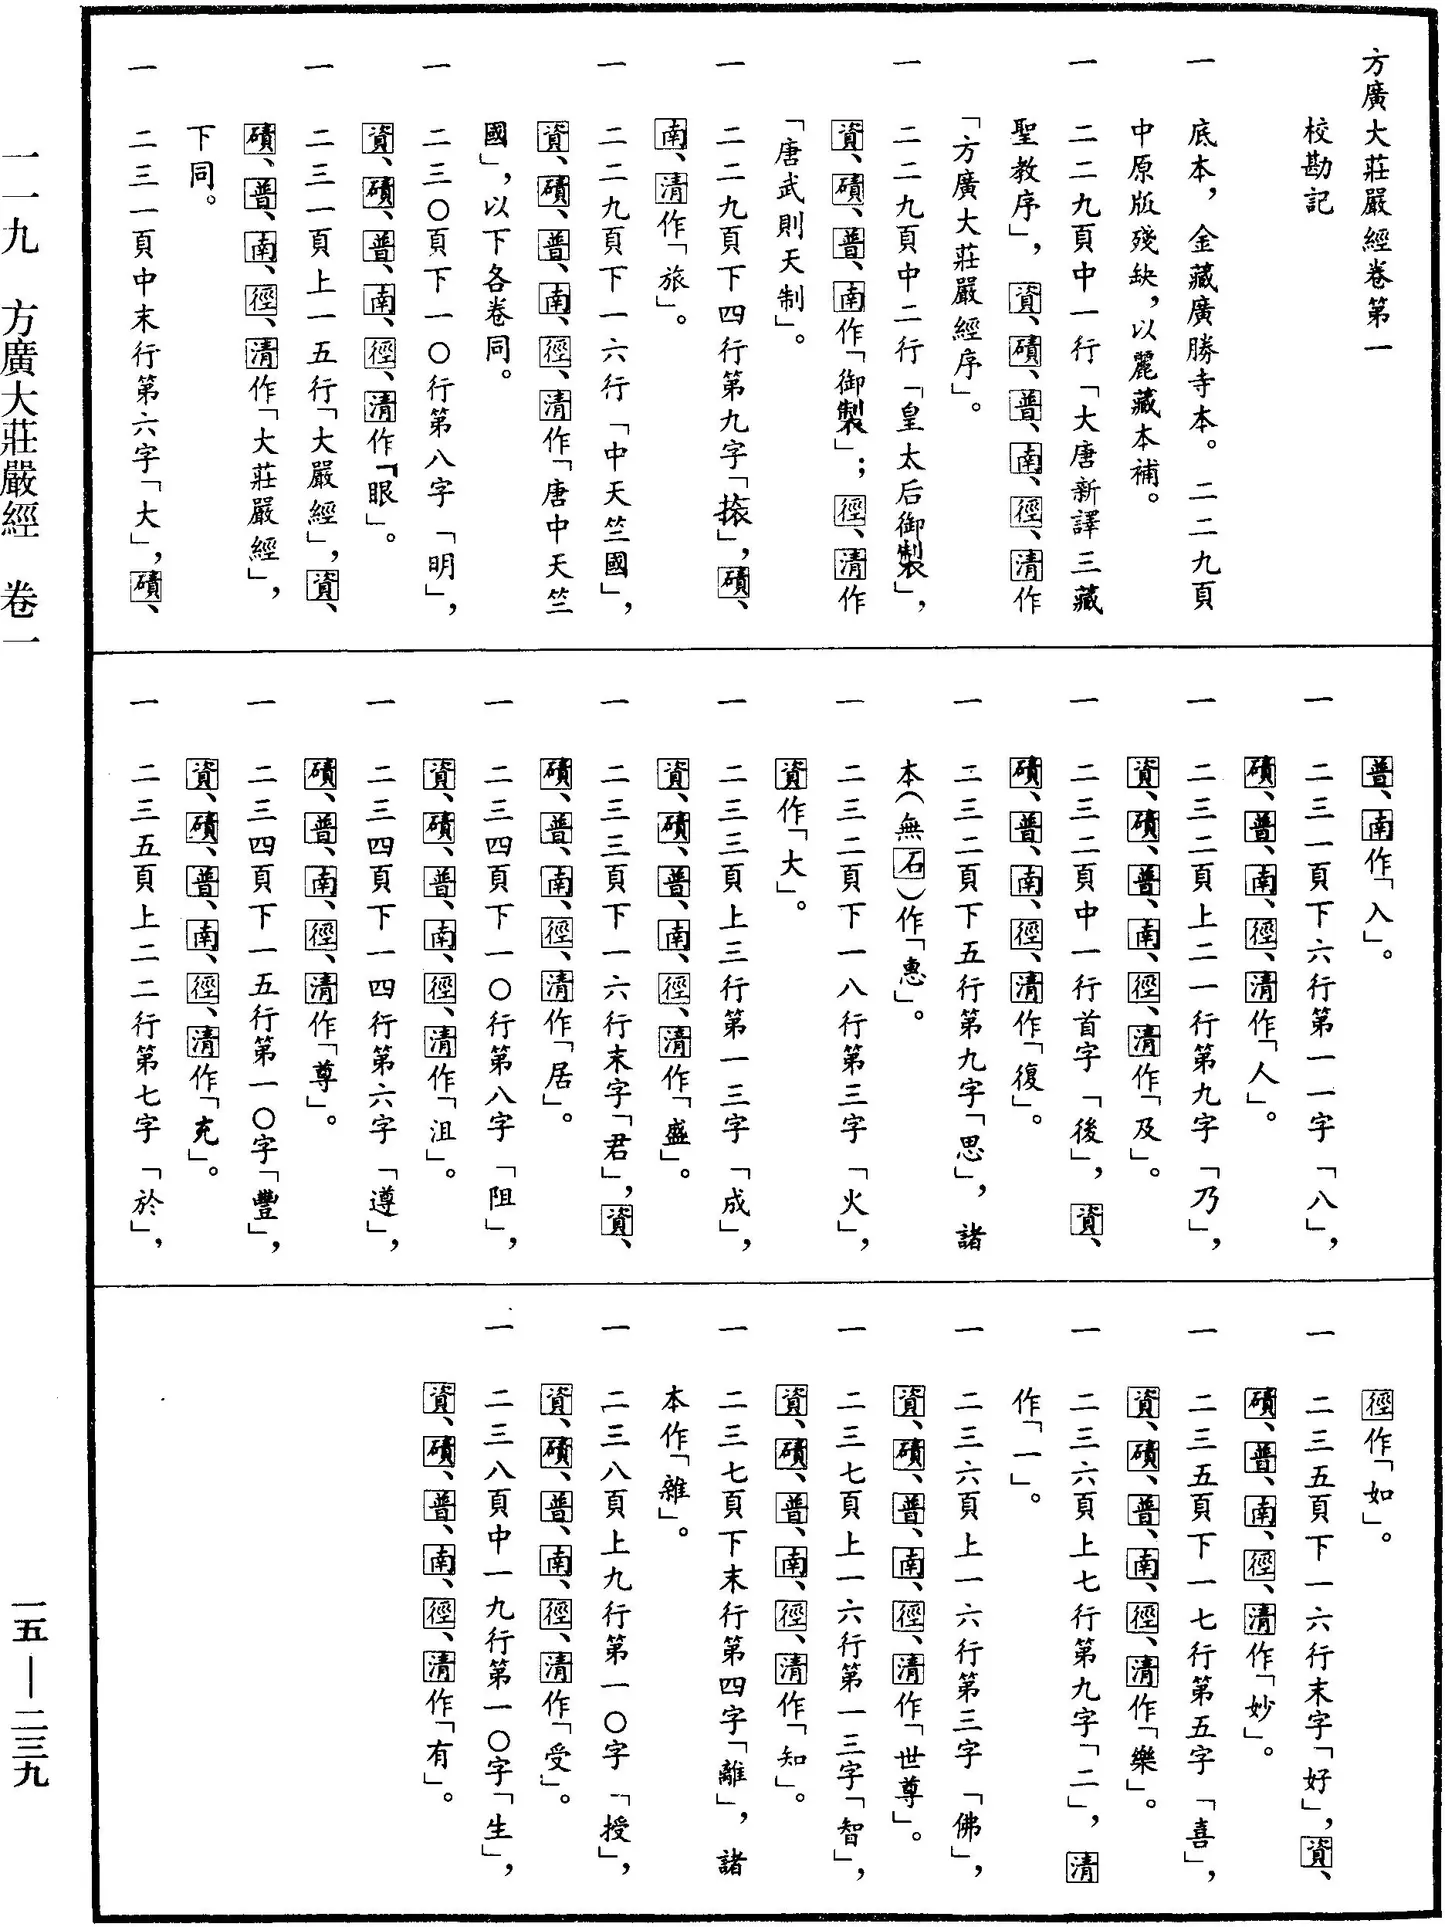 方廣大莊嚴經卷第一
校勘記
一 底本，金藏廣勝寺本。二二九頁
中原版殘缺，以麗藏本補。
一 二二九頁中一行「大唐新譯三藏
聖教序」，資、磧、普、南、徑、清作
「方廣大莊嚴經序」。
一 二二九頁中二行「皇太后御製」，
資、磧、普、南作「御製」；徑、清作
「唐武則天制」。
一 二二九頁下四行第九字「捬」，磧、
南、清作「旅」。
一 二二九頁下一六行「中天竺國」，
資、磧、普、南、徑、清作「唐中天竺
國」，以下各卷同。
一 二三〇頁下一〇行第八字「明」，
資、磧、普、南、徑、清作「眼」。
一 二三一頁上一五行「大嚴經」，資、
磧、普、南、徑、清作「大莊嚴經」，
下同。
一 二三一頁中末行第六字「大」，磧、
普、南作「入」。
一 二三一頁下六行第一一字「八」，
磧、普、南、徑、清作「人」。
一 二三二頁上二一行第九字「乃」，
資、磧、普、南、徑、清作「及」。
一 二三二頁中一行首字「後」，資、
磧、普、南、徑、清作「復」。
一 二三二頁下五行第九字「思」，諸
本（無石）作「惠」。
一 二三二頁下一八行第三字「火」，
資作「大」。
一 二三三頁上三行第一三字「成」，
資、磧、普、南、徑、清作「盛」。
一 二三三頁下一六行末字「君」，資、
磧、普、南、徑、清作「居」。
一 二三四頁下一〇行第八字「阻」，
資、磧、普、南、徑、清作「沮」。
一 二三四頁下一四行第六字「遵」，
磧、普、南、徑、清作「尊」。
一 二三四頁下一五行第一〇字「豐」，
資、磧、普、南、徑、清作「充」。
一 二三五頁上二二行第七字「於」，
徑作「如」。
一 二三五頁下一六行末字「好」，資、
磧、普、南、徑、清作「妙」。
一 二三五頁下一七行第五字「喜」，
資、磧、普、南、徑、清作「樂」。
一 二三六頁上七行第九字「二」，清
作「一」。
一 二三六頁上一六行第三字「佛」，
資、磧、普、南、徑、清作「世尊」。
一 二三七頁上一六行第一三字「智」，
資、磧、普、南、徑、清作「知」。
一 二三七頁下末行第四字「離」，諸
本作「雜」。
一 二三八頁上九行第一〇字「授」，
資、磧、普、南、徑、清作「受」。
一 二三八頁中一九行第一〇字「生」，
資、磧、普、南、徑、清作「有」。
一一九 方廣大莊嚴經 卷一
一五—二三九